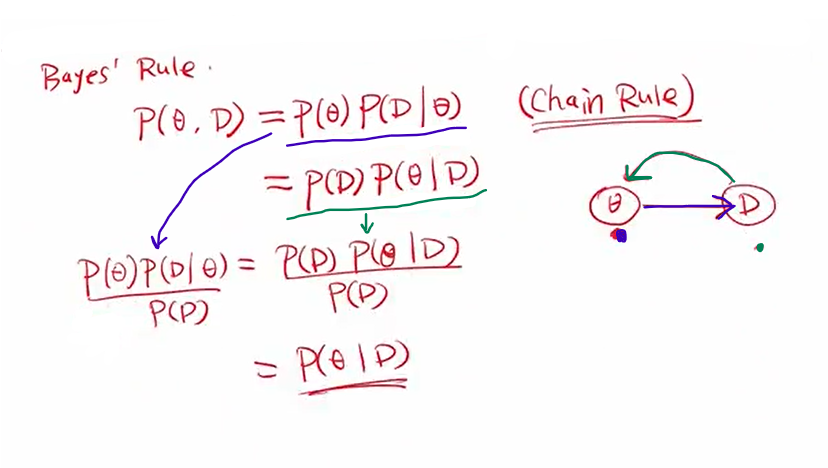 Bayes' Rule.
P(θ, D) = P(θ) P(D|θ) (Chain Rule)
= P(D) P(θ|D)
θ D
P(θ)P(D|θ) = P(D) P(θ|D)
P(D) P(D)
= P(θ|D)